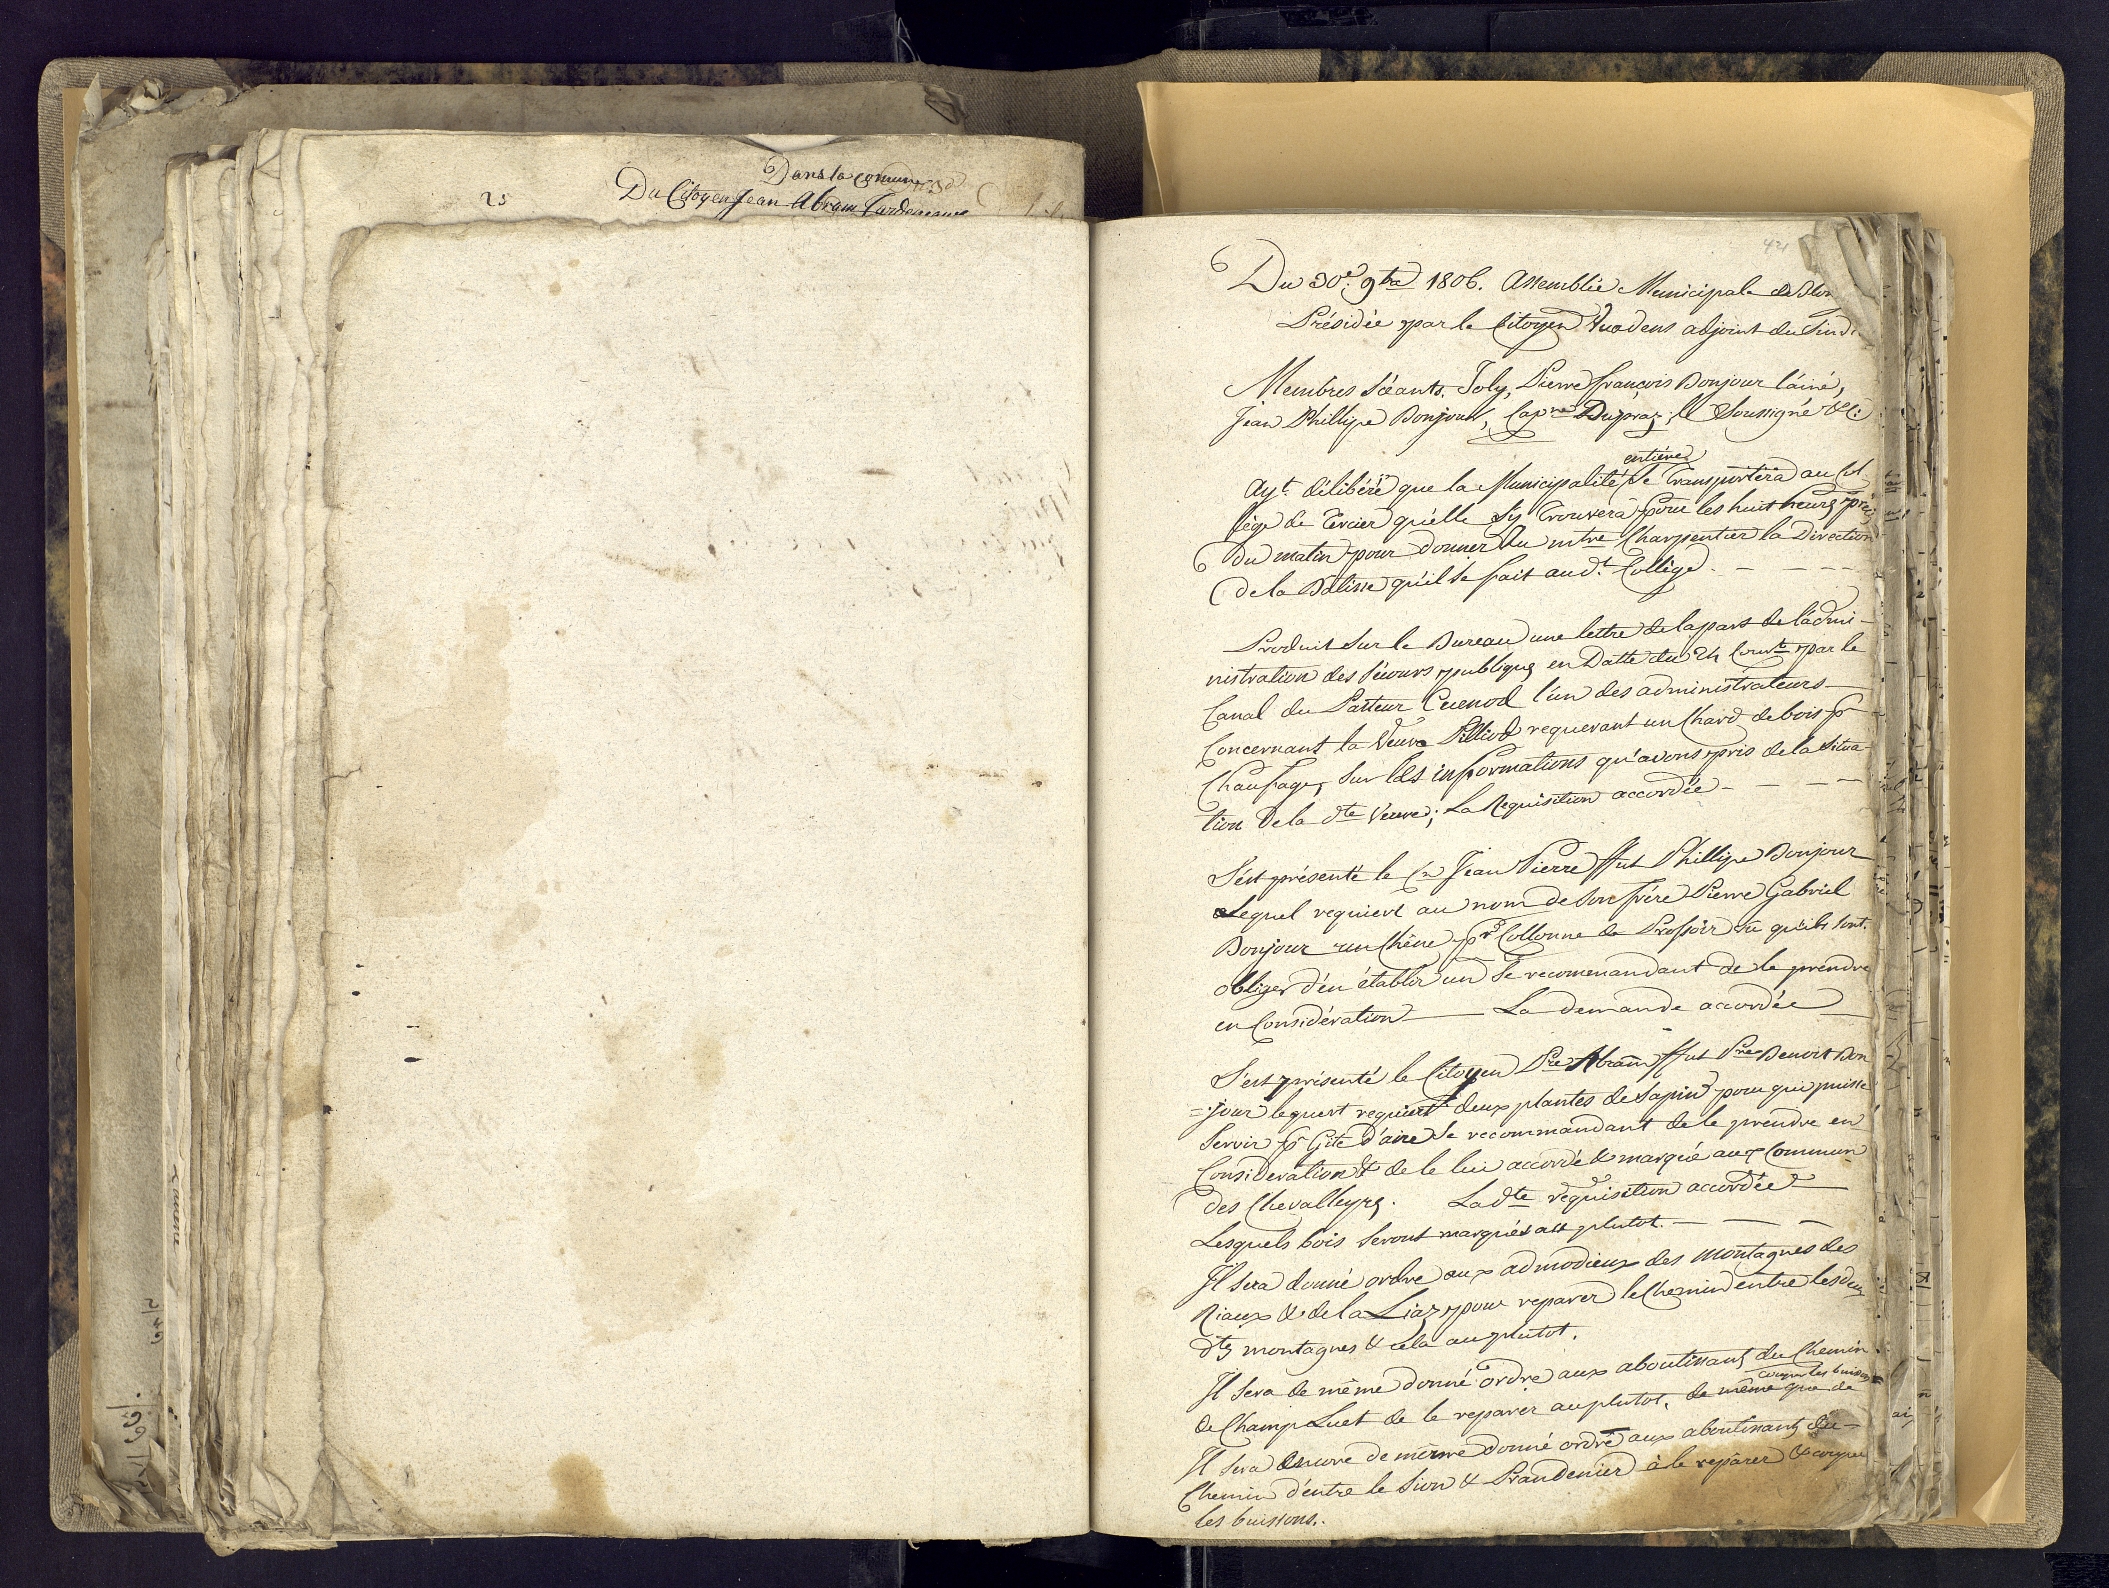 Dans la comune
25
Du Citoyen Jean Abram
421
Du 30e. 9bre 1806. Assemblée Municipale de Blon
Présidée par le Citoyen adjoint du Sindi
Membres Séants. Joly, Pierre françois Bonjour l'ainé,
Jean Phillipe Bonjour, Dupraz, le Soussigné &c:
entiére
Ayt. délibéré que la Municipalité Se Transportera au Col
lége de Tercier qu'elle s'y Trouvera pour les huit heures préci
du matin pour donner au mtre Charpentier la Direction
de la Batisse qu'il se fait aud.t Collége. - - - -
Produit Sur le Bureau une lettre de la part de l'admi-
nistration des Sécours publiques en Datte du 24 Court par le
Canal du Pasteur Cuenod l'un des administrateurs
Concernant la Veuve Pilliod requerant un Chard de bois pr
Chaufage, Sur les informations qu'avons pris de la Situa-
tion de la dte Veuve; La Requisition accordée - - -
S'est présenté le Cn Jean Pierre ffut Phillipe Bonjour
Lequel requiert au nom de Son frére Pierre Gabriel
Bonjour un Chêne pr Collonne de Pressoir vu qu'ils sont
obliger d'en établir un Se recommandant de le prendre
en Considération — La demande accordée
S'est présenté le Citoyen Pre Abram ffut Pre Benoit Bon
=jour lequert requiert deux plantes de Sapin pour qui puisse
Servir pr Gite d'aire Se recommandant de le prendre en
Considération & de le lui accordé & marqué aux Commun
des Chevalleyres. La dte requisition accordée
Lesquels bois Seront marqués au plutot. - - -
Il Sera donné ordre aux admodieux des montagnes des
Niaux & de la Liaz pour reparer le Chemin entre les deux
dtes montagnes & cela au plutot.
Il Sera de même donné ordre aux aboutissants du Chemin
couper les buissons
de Champ Luet de le reparer au plutot, de même que de
Il Sera encore de même donné ordre aux aboutissants du
Chemin d'entre le Sion & Prandenier à le réparer & couper
les buissons.